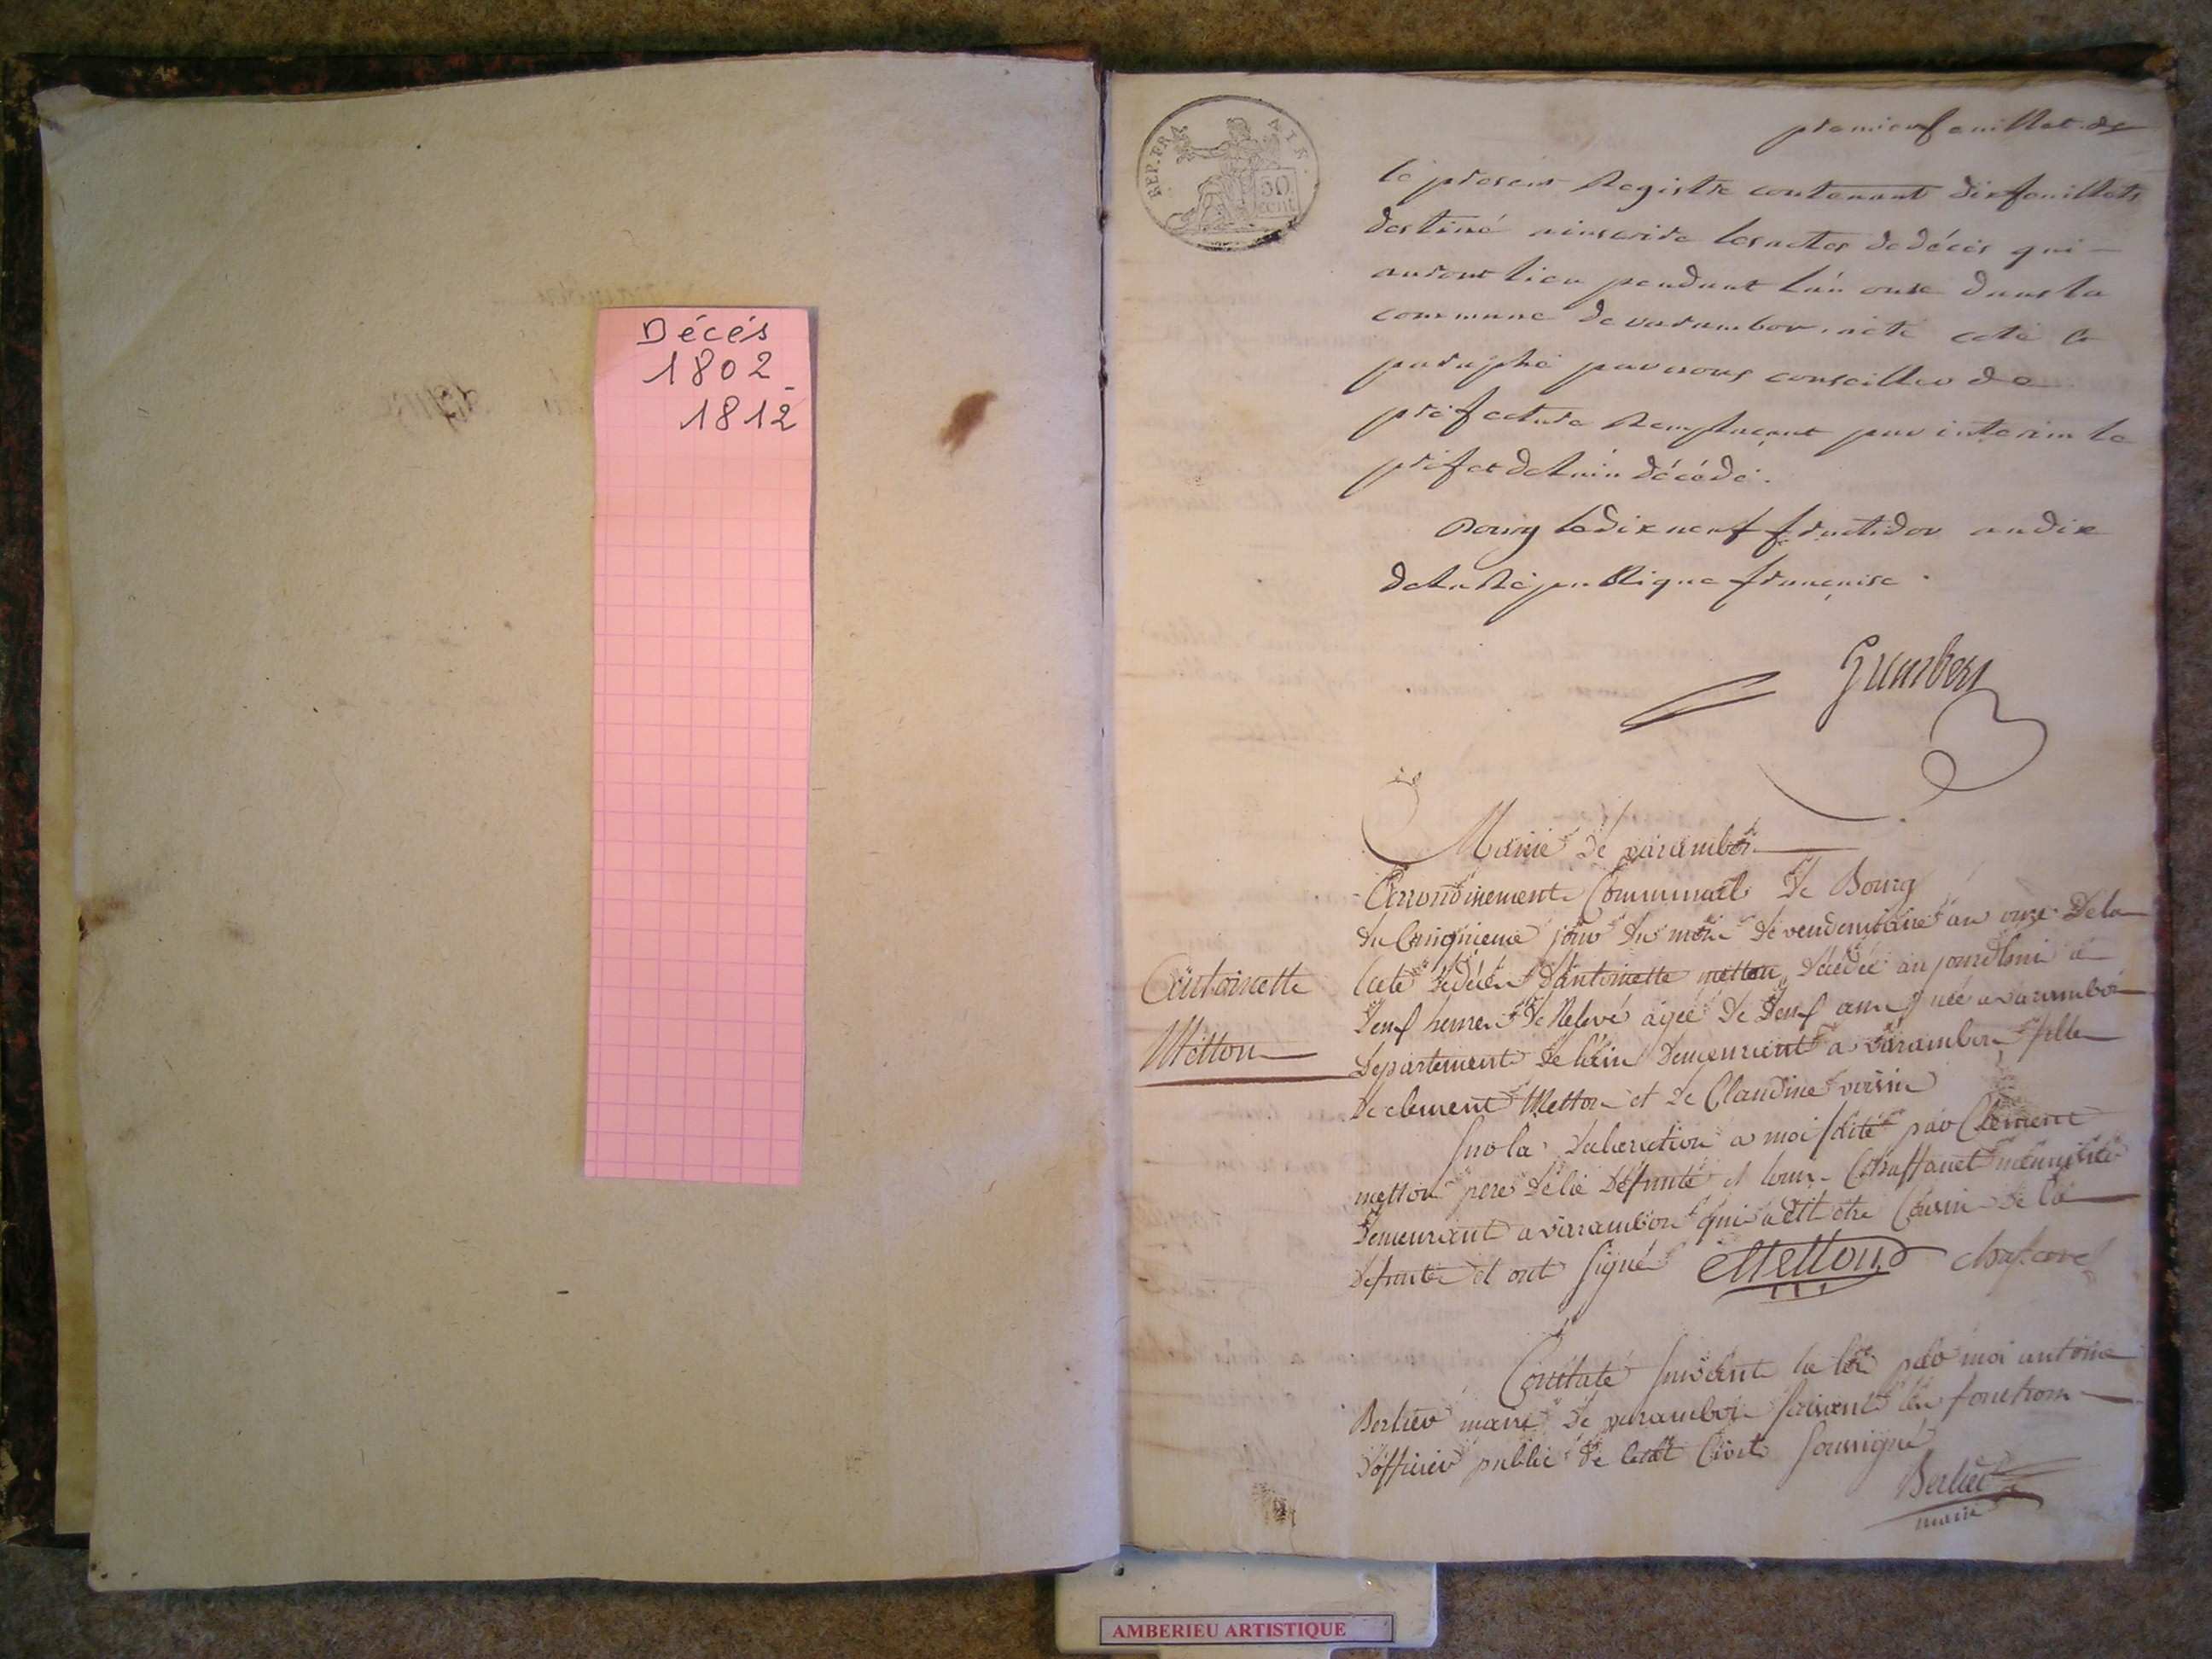 Décés
1802_
1812
REP. FRA
AIN
50
cent
premier feuillet. dx
le présent Registre contenant dix feuillets
destiné a inscrire les actes de décès qui
auront lieu pendant l'an onze dans la
commune de varambon. a été coté &
paraphé par nous conseiller de
préfecture Remplacant par interim le
préfet de l'ain décédé.
Bourg le dix neuf fructidor an dix
de la République française.
Mairie de varambon
Arrondissement Communal de Bourg
du Cinquieme jour du mois de vendemiaire an onze de la
Antoinette
Metton
acte de décès d'antoinette metton décédée aujourdhui a
heures de Relevé agée de ans née a varambon
departement de l'ain demeurant a varambon fille
de clement Metton et de Claudine voisin
sur la declaration a moi faite par Clément
metton pere de la défunte et louis
demeurant a varambon qui a dit etre Cousin de la
defunte et ont signé CMetton
Constaté suivant la loi par moi antoine
Berlier maire de varambon faisant les fonctions
d'officier public de l'etat Civil soussigné
Berlier
maire
AMBERIEU ARTISTIQUE